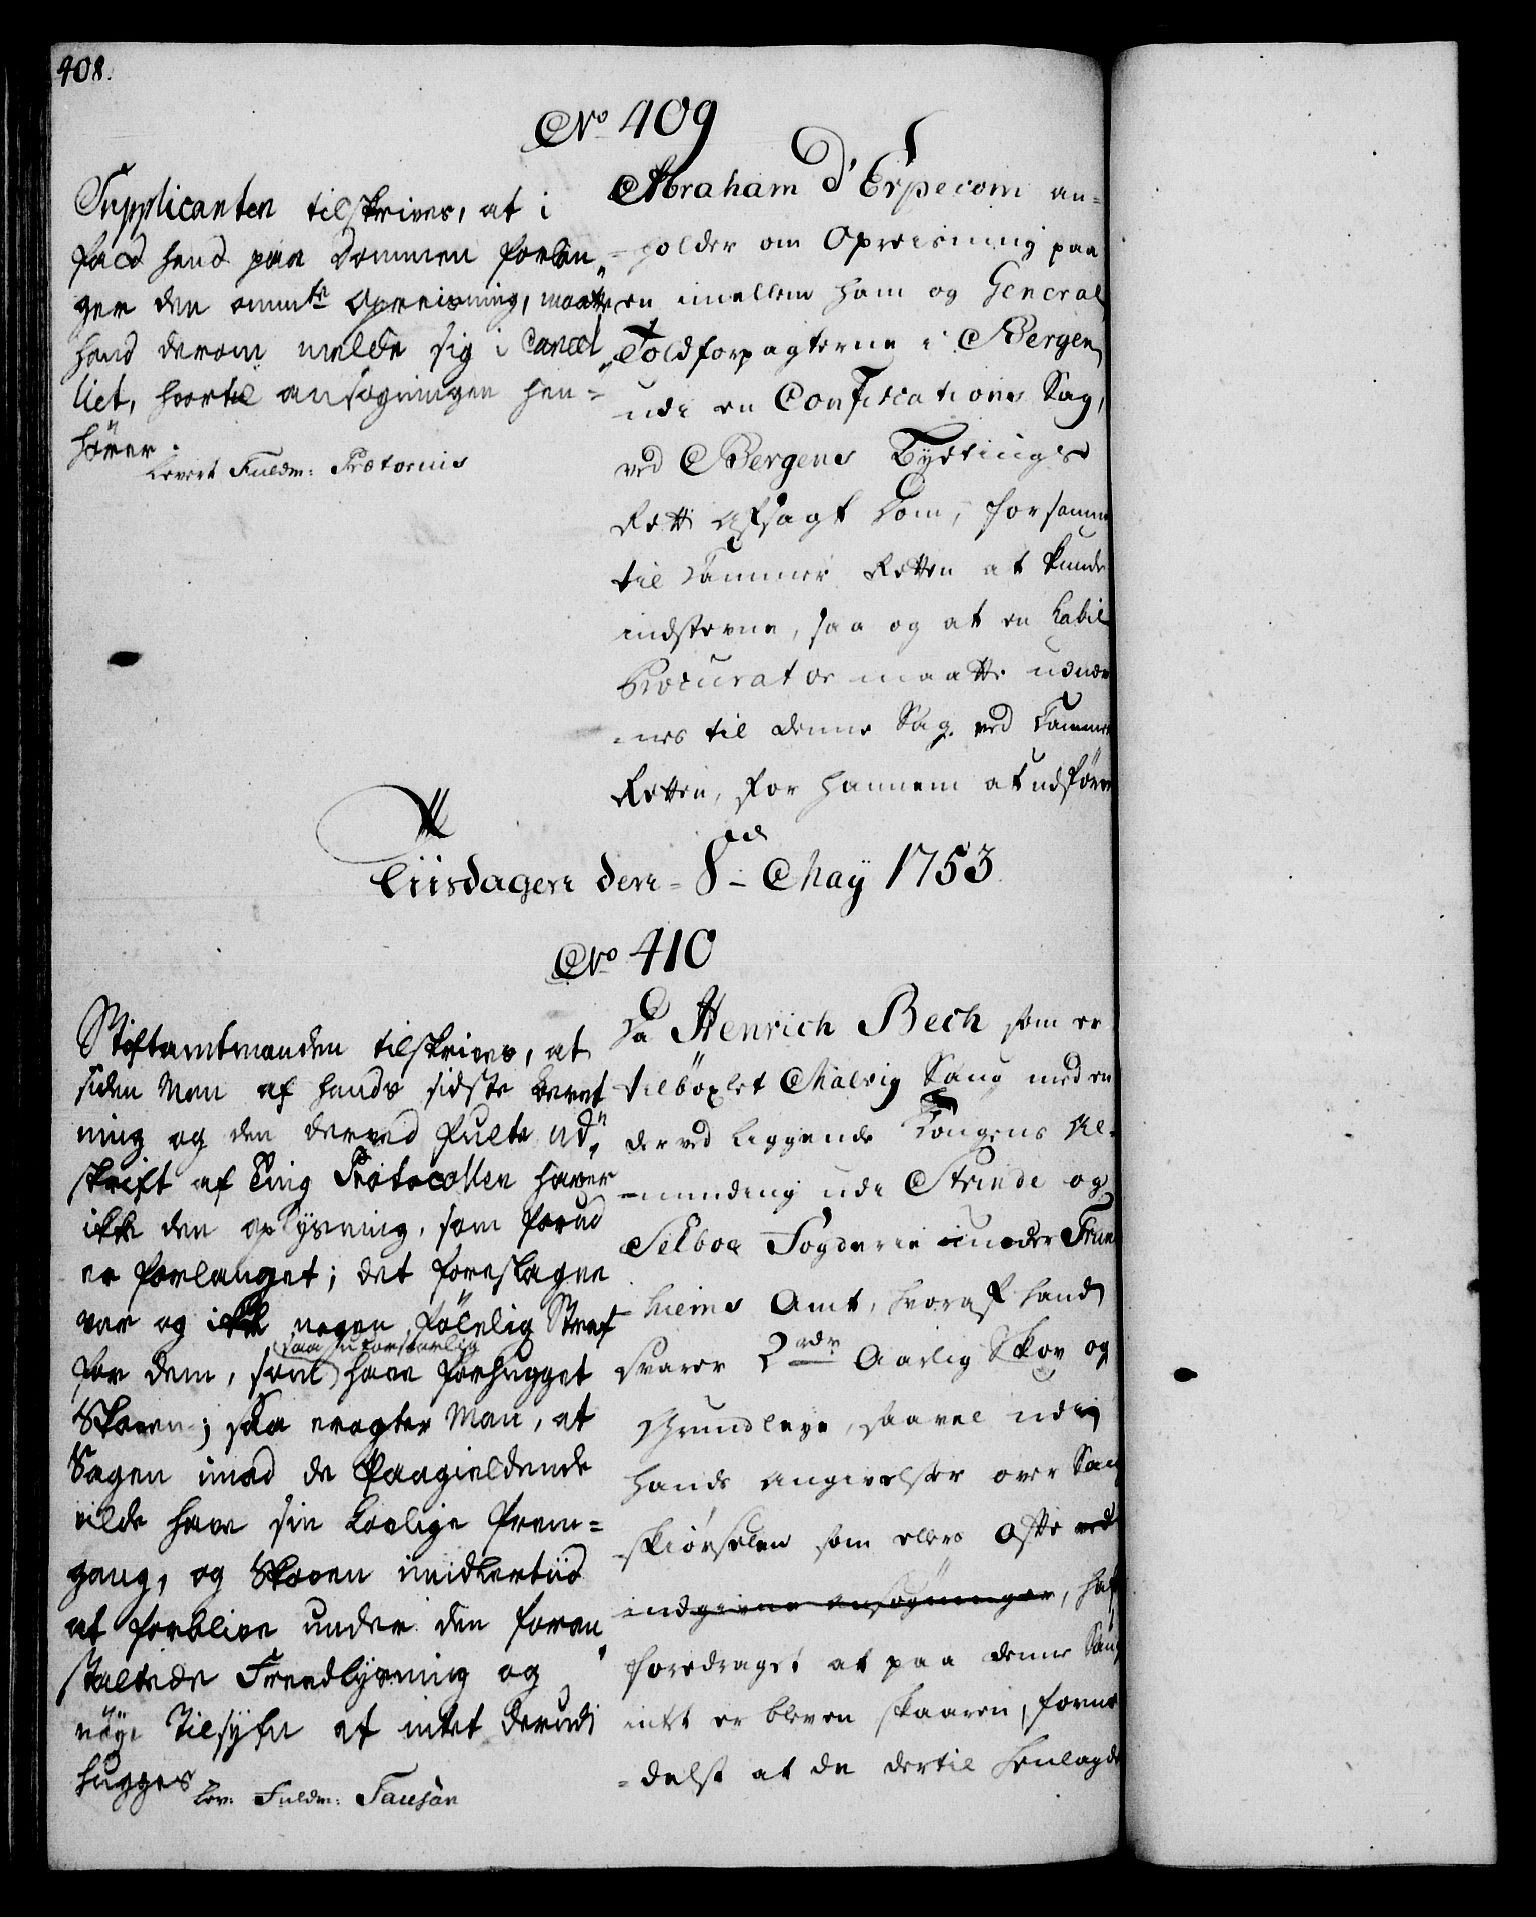 408.
No 409
Supplicanten tilskrives, at i
fald hand paa Dommen forlan„
ger den ommte Opreisning, maatte
hand derom melde sig i Cancel„
liet, hvortil ansøgningen hen=
hører.
Levert Fuldm: Prætorius
Abraham d'Erpecom an=
=holder om Opreisning paa
en imellem ham og General
Toldforpagterne i Bergen
udi en Confiscations Sag,
ved Bergens Byetings
Rett afsagt Dom, for samme
til Cammer Retten at kunde
indstevne, saa og at en habil
Procurator maatte udnæv
=nes til denne Sag ved Cammer
Retten, for hannem at udføre
Tiisdagen den 8de Maÿ 1753
No 410
Stiftamtmanden tilskrives, at
siden Man af hands sidste Beret
ning og den derved fulte ud„
skrift af Ting Protocollen haver
ikke den oplysning, som forud
er forlanget; det foreslagne
var og ikke nogen følelig Straf
saa uforsvarlig
for dem, som have forhugget
Skoven; saa eragter Man, at
Sagen imod de Paagieldende
vilde have sin Lovlige frem=
gang, og Skoven imidlertiid
at forblive under den foran„
staltede Freedlysning og
nøye Tilsyfn at intet derudi
hugges
Lev: Fuldm: Tausan
Da Henrich Bech som er
tilbøxlet Malvig Saug med en
derved liggende Kongens Al=
=minding udi Strinde og
Selboe Fogderie under Trun
=hiems Amt, hvoraf hand
svarer 2 rdr Aarlig Skov og
Grundleye, saavel udi
hands Angivelser over Saug
=skiørselen som ellers ofte ved
indgivne ansøgninger, haf
foredraget at paa denne Saug
intet er bleven skaaren, forme
=delst at de dertil henlagde